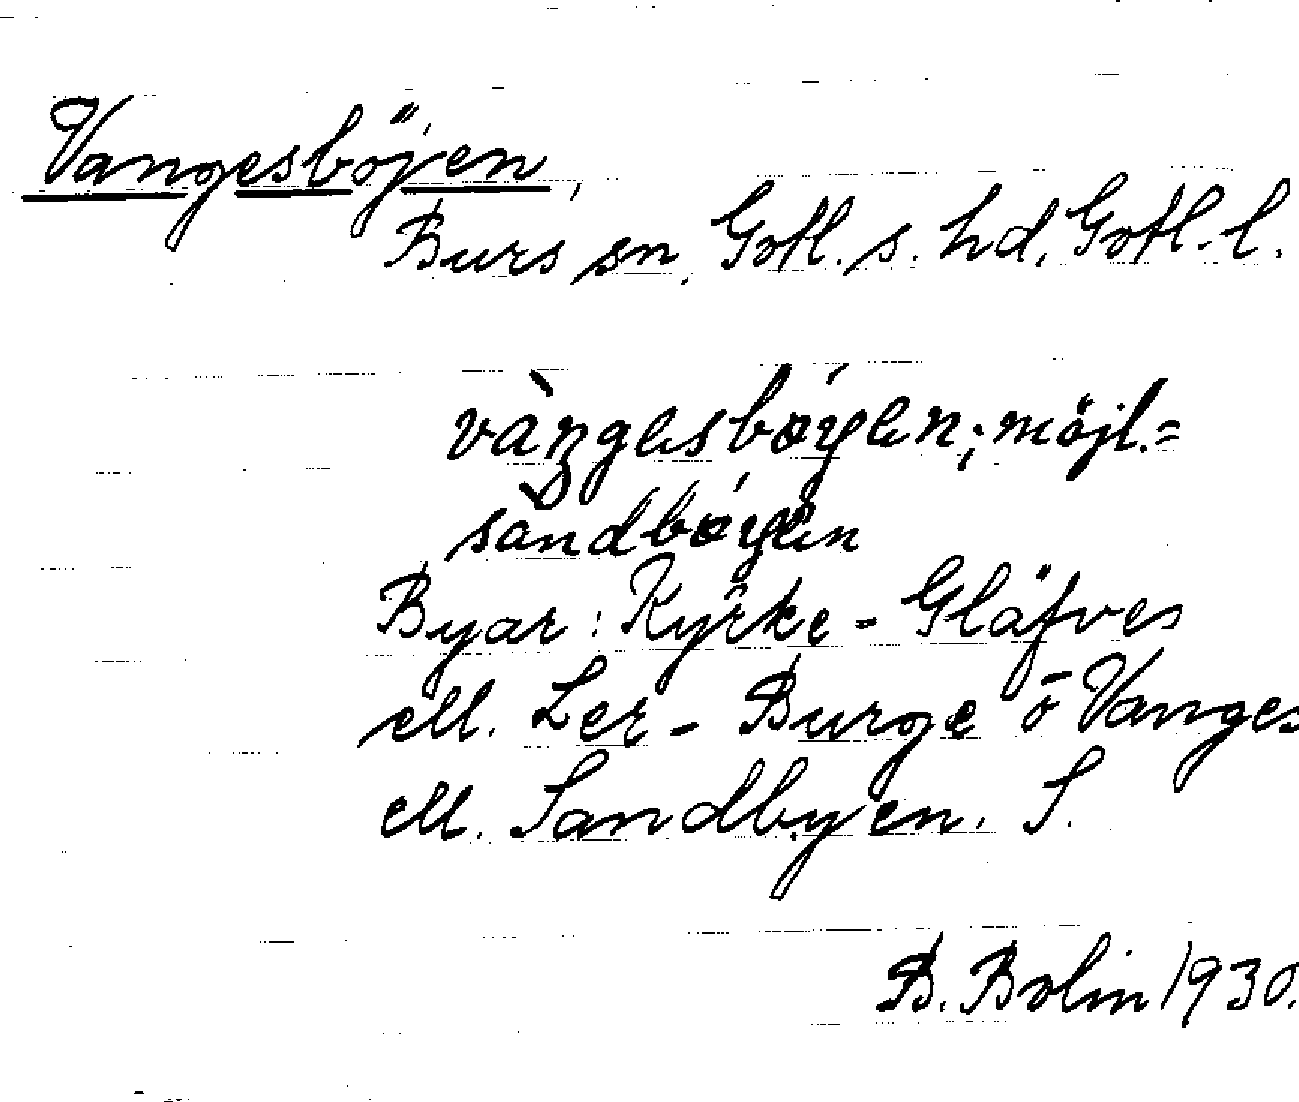 Vangesböjen,
Burs sn, Gotl. s. hd, Gotl. l.
vàŋgesbøyen; möjl.=
sàndbøyen
Byar: Kyrke-Gläfves
ell. Ler-Burge ō Vanges
ell. Sandbyen. S.
B. Bolin 1930.